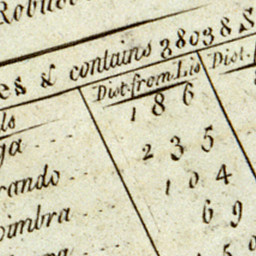 es & contains 38038 S
Dist. from Lis Dist.
ls 186
ja 235
rando 104
oimbra 69